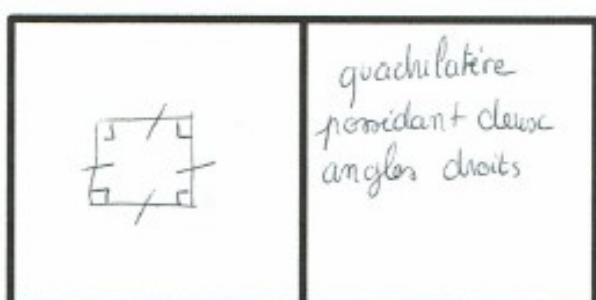 quadrilatère
possédant deux
angles droits